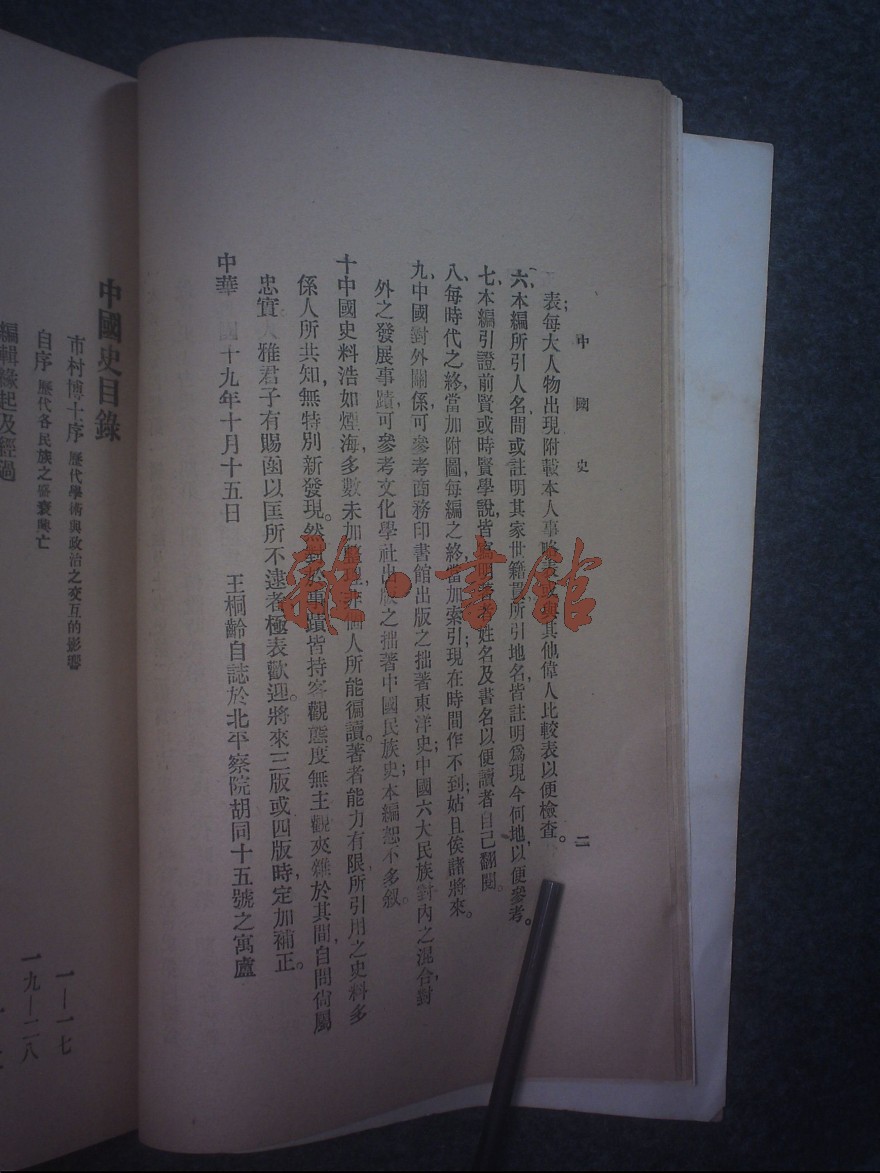 中國史
二
表；每大人物出現附載本人事略表與其他偉人比較表以便檢查。
六、本編所引人名間或註明其家世籍貫，所引地名皆註明爲現今何地，以便參考。
七、本編引證前賢或時賢學說，皆寫明著者姓名及書名以便讀者自己翻閱。
八、每時代之終當加附圖，每編之終當加索引；現在時間作不到，姑且俟諸將來。
九、中國對外關係可參考商務印書館出版之拙著東洋史；中國六大民族對內之混合，對
外之發展事蹟，可參考文化學社出版之拙著中國民族史；本編恕不多叙。
十、中國史料浩如煙海，多數未加整理，非個人所能徧讀。著者能力有限，所引用之史料多
係人所共知，無特別新發現。然對於事蹟皆持客觀態度，無主觀夾雜於其間，自問尙屬
忠實。大雅君子有賜函以匡所不逮者，極表歡迎。將來三版或四版時，定加補正。
中華 國十九年十月十五日 王桐齡自誌於北平察院胡同十五號之寓廬
中國史目錄
市村博士序 歷代學術與政治之交互的影響
一—一七
自序 歷代各民族之盛衰興亡
一九—二八
編輯緣起及經過
雜·書館